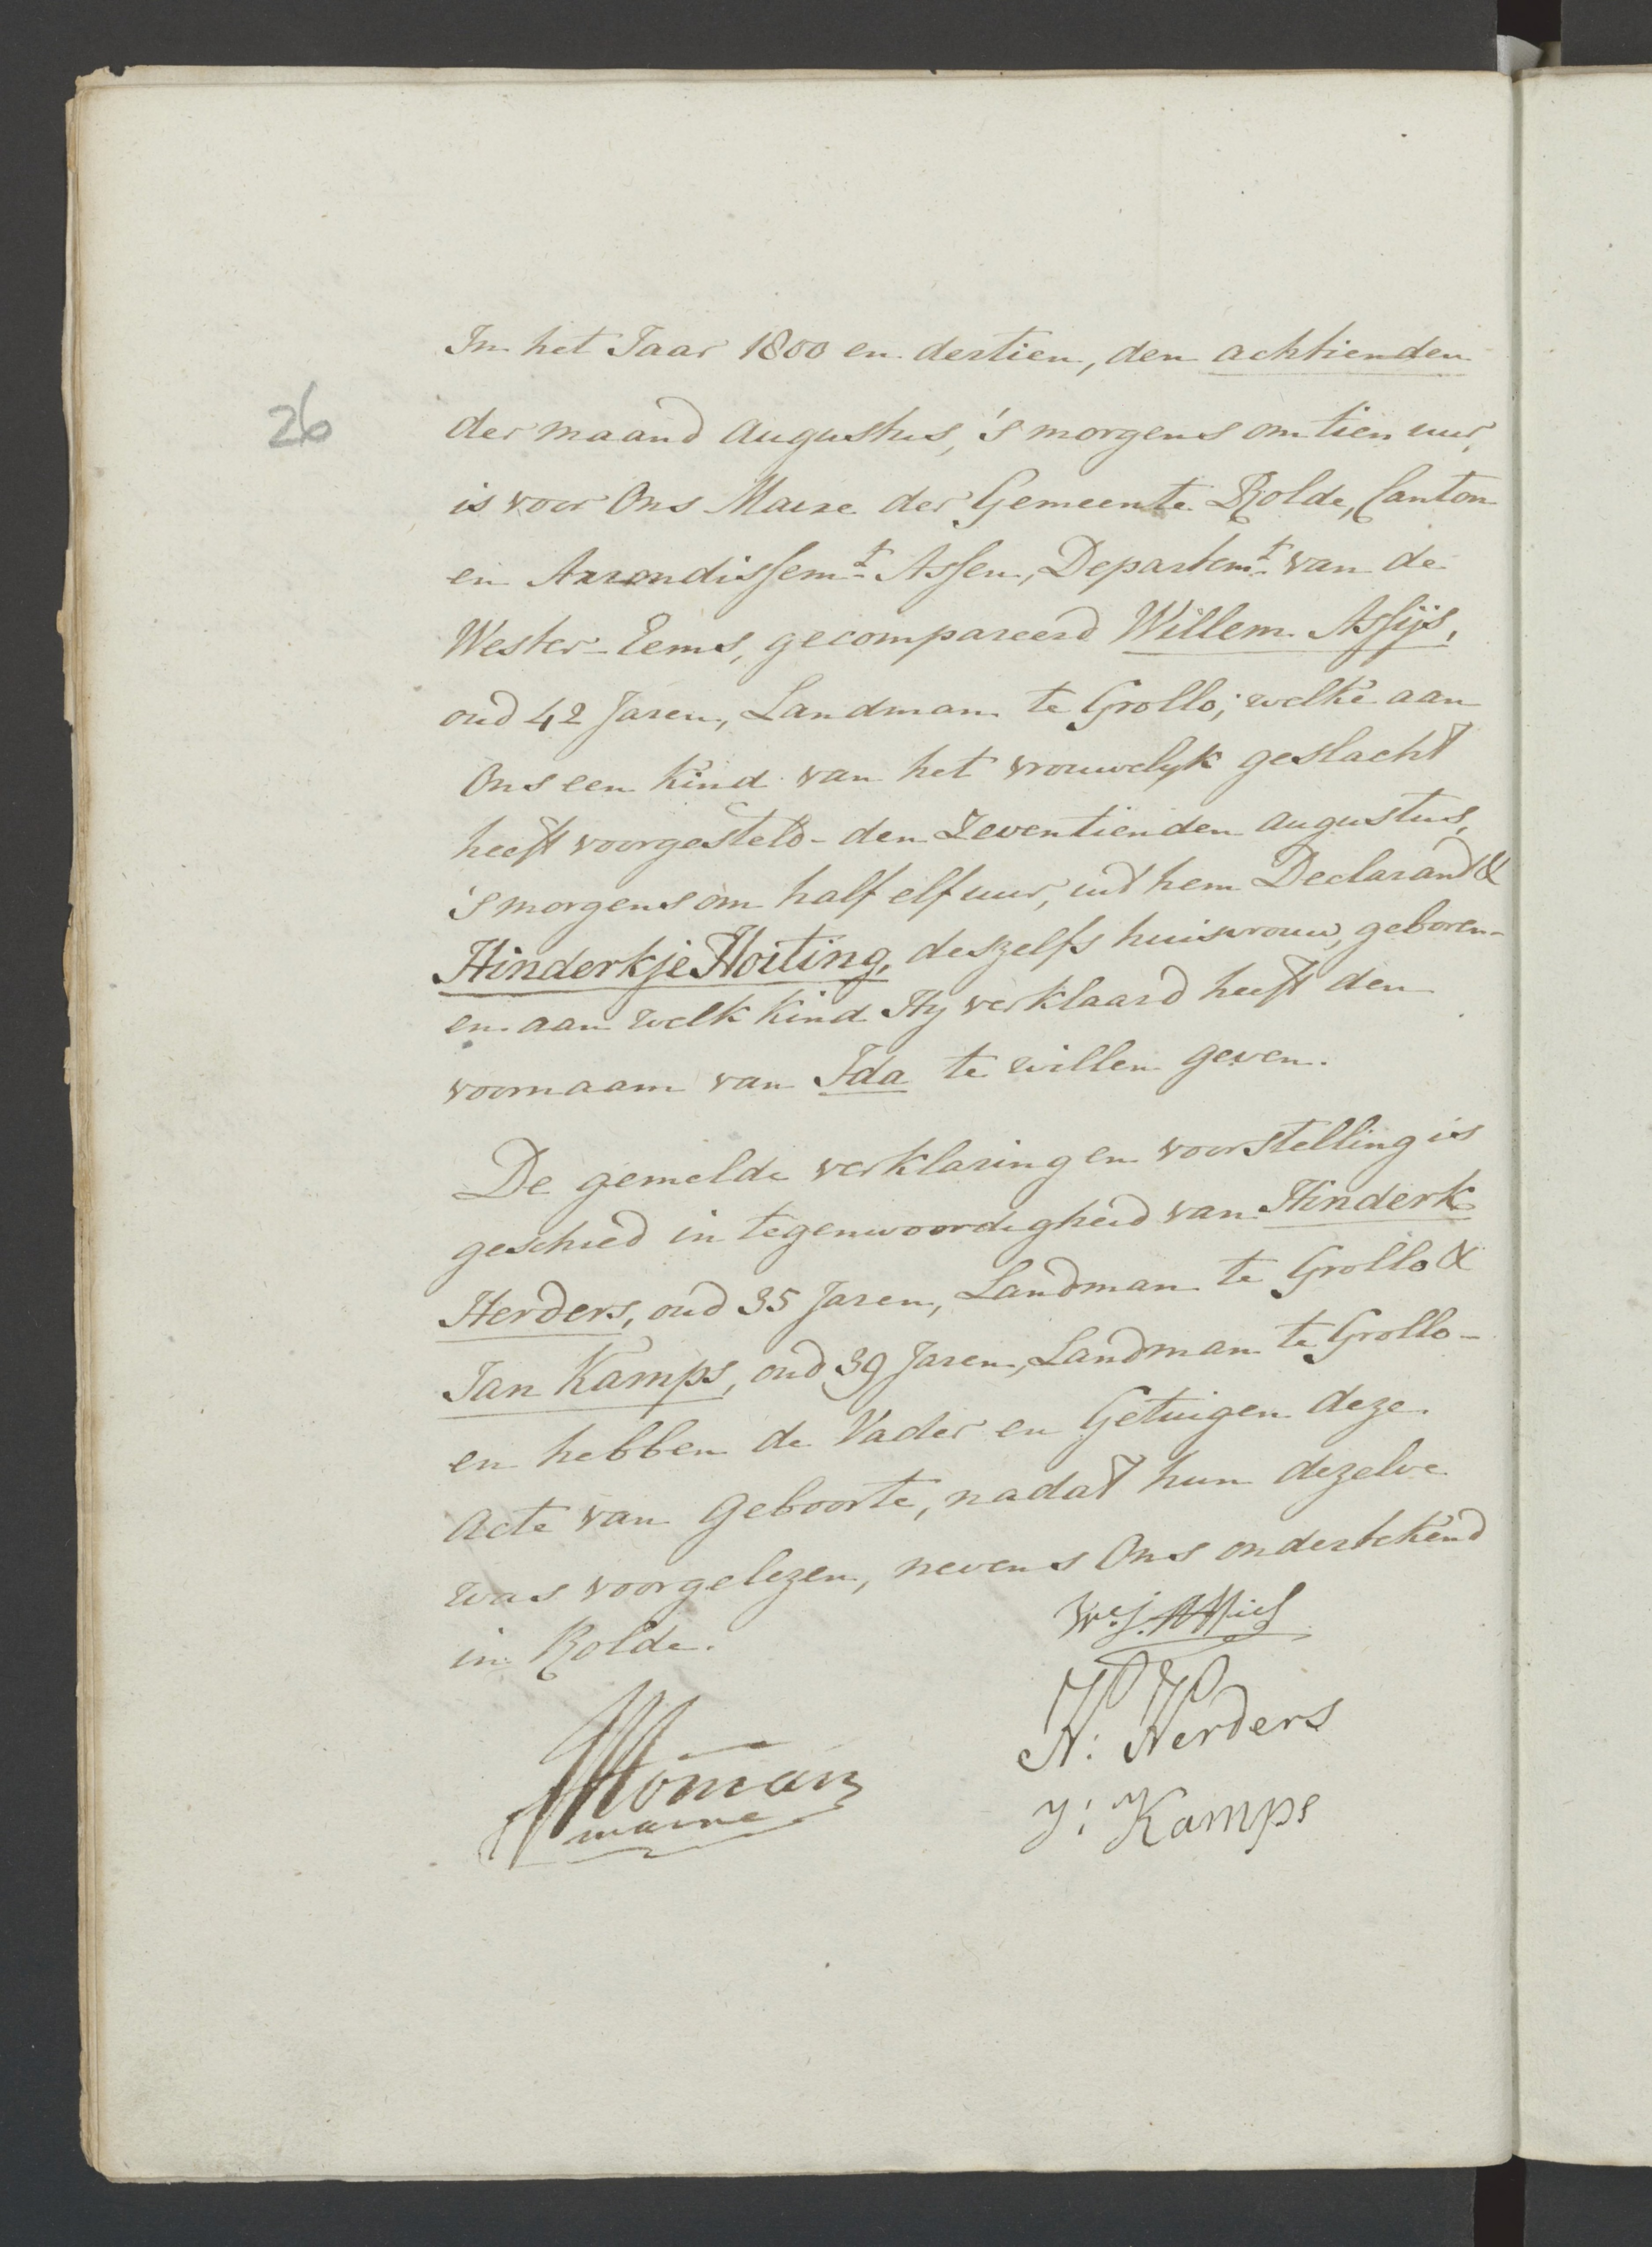 In het Jaar 1800 en dertien, den achtienden
26
der maand Augustus, 's morgens om tien uur,
is voor Ons Maire der Gemeente Rolde, Canton
en Arrondissemt. Assen, Departemt. van de
Wester-Eems, gecompareerd Willem Assijs,
oud 42 Jaren, Landman te Grollo; welke aan
Ons een kind van het vrouwelyk geslacht
heeft voorgesteld - den Zeventienden Augustus,
's morgens om half elf uur, uit hem Declarand &
Hinderkje Hoiting, deszelfs huisvrouw, geboren -
en aan welk kind Hy verklaard heeft den
voornaam van Ida te willen geven.
De gemelde verklaring en voorstelling is
geschied in tegenwoordigheid van Hinderk
Herders, oud 35 Jaren, Landman te Grollo &
Jan Kamps, oud 39 Jaren, Landman te Grollo -
en hebben de Vader en Getuigen deze
Acte van Geboorte, nadat hun dezelve
was voorgelezen, nevens Ons ondertekend
in Rolde.
H: Herders
Homan
maire
J: Kamps